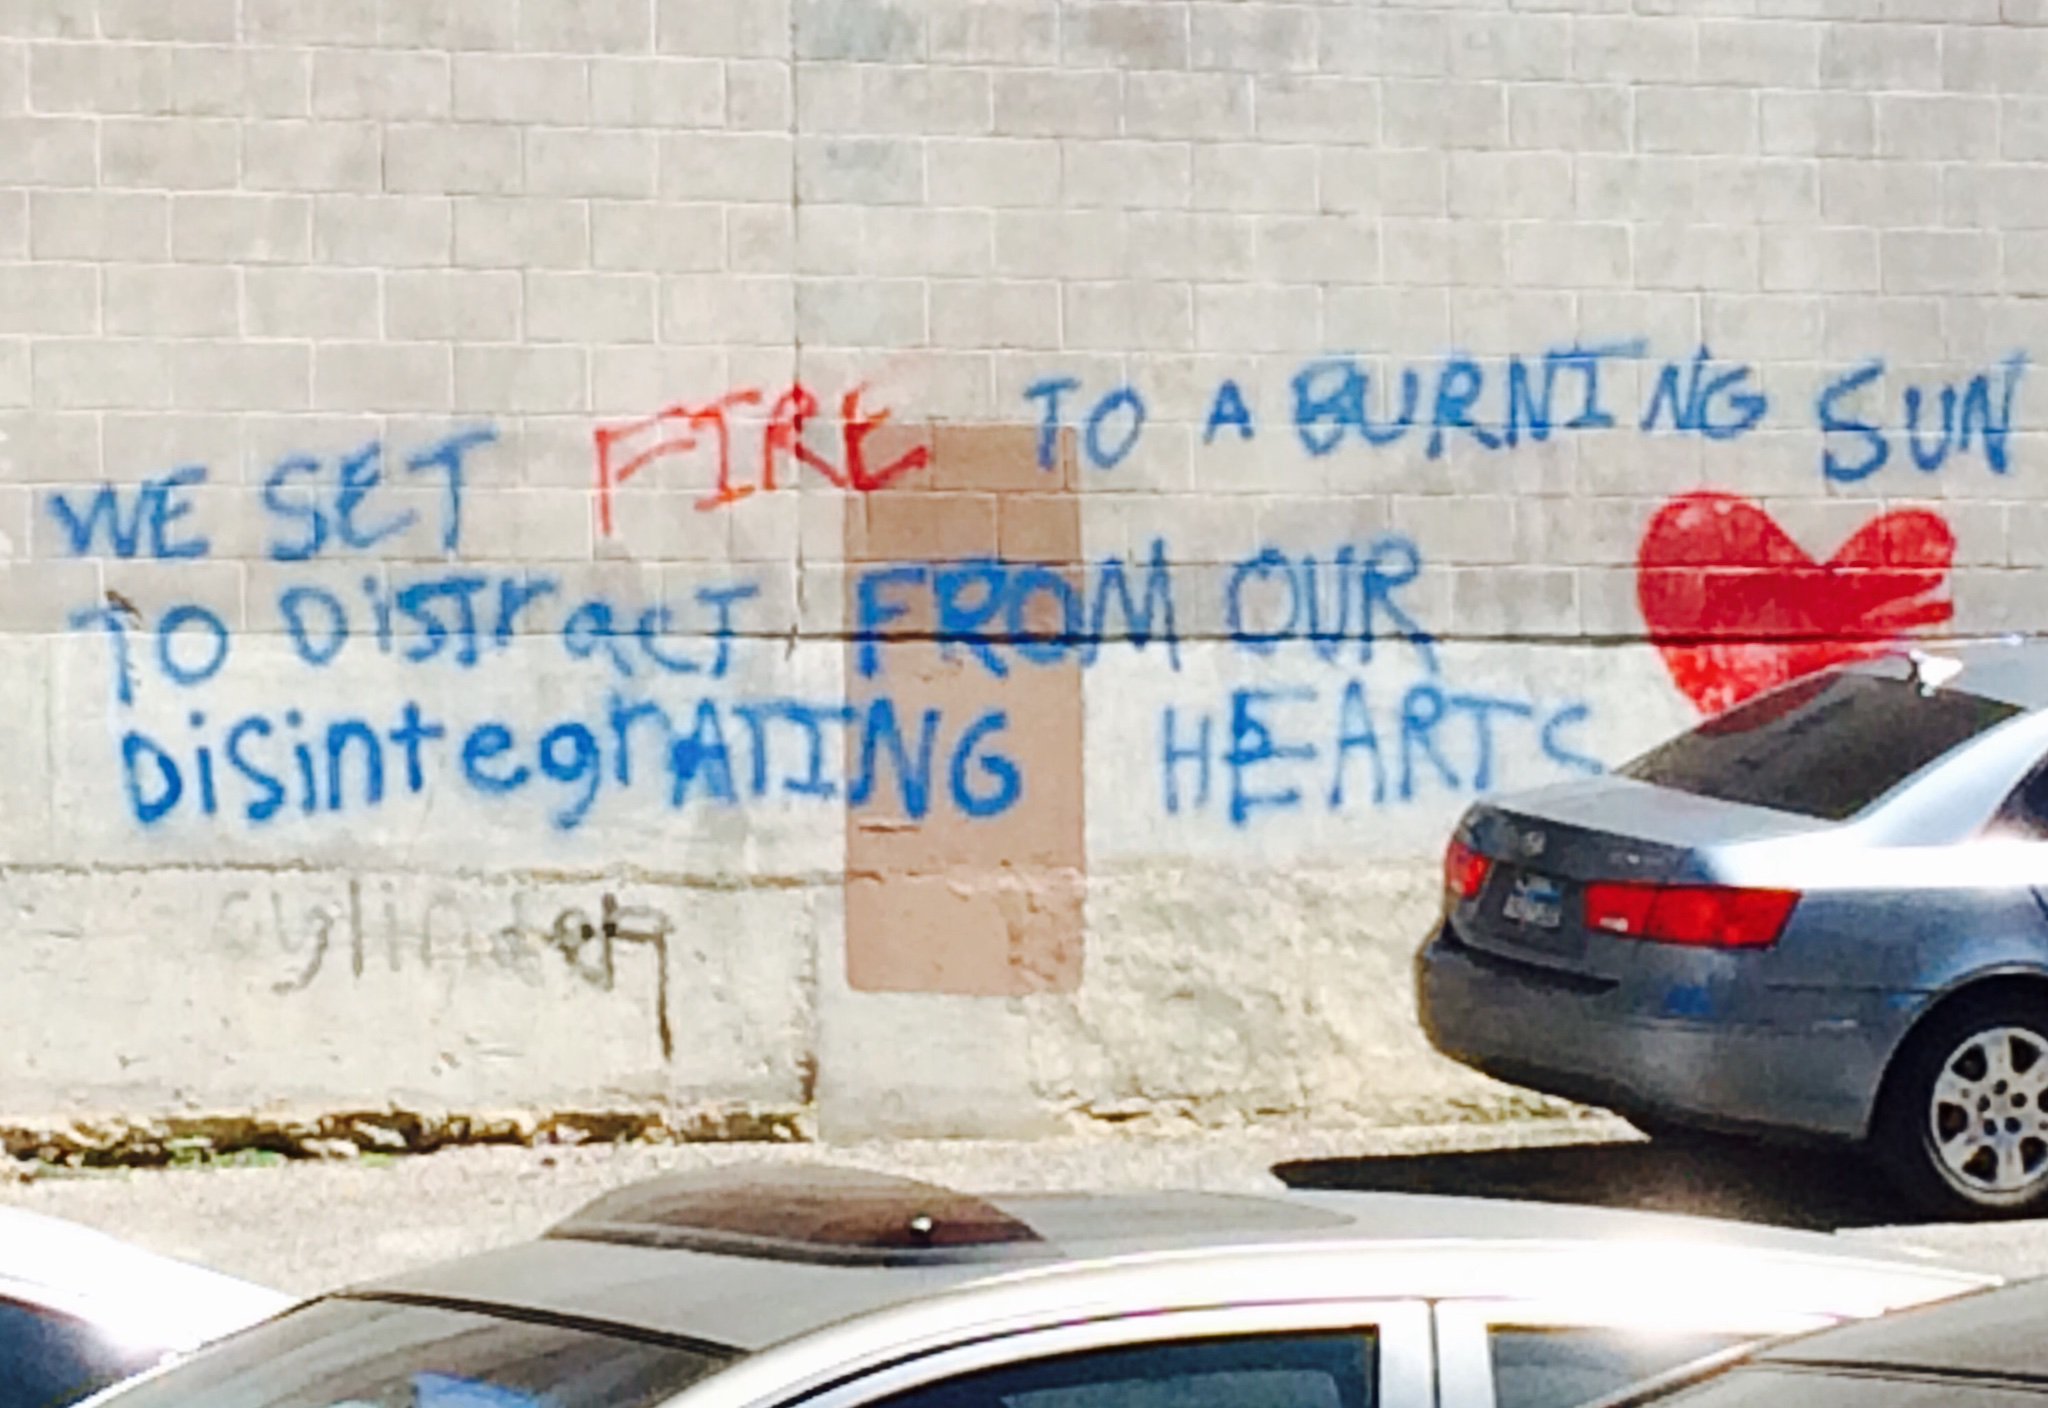 WE SET FIRE TO A BURNING SUN
TO DisTracT FROM OUR
DisintegrATING HEARTS